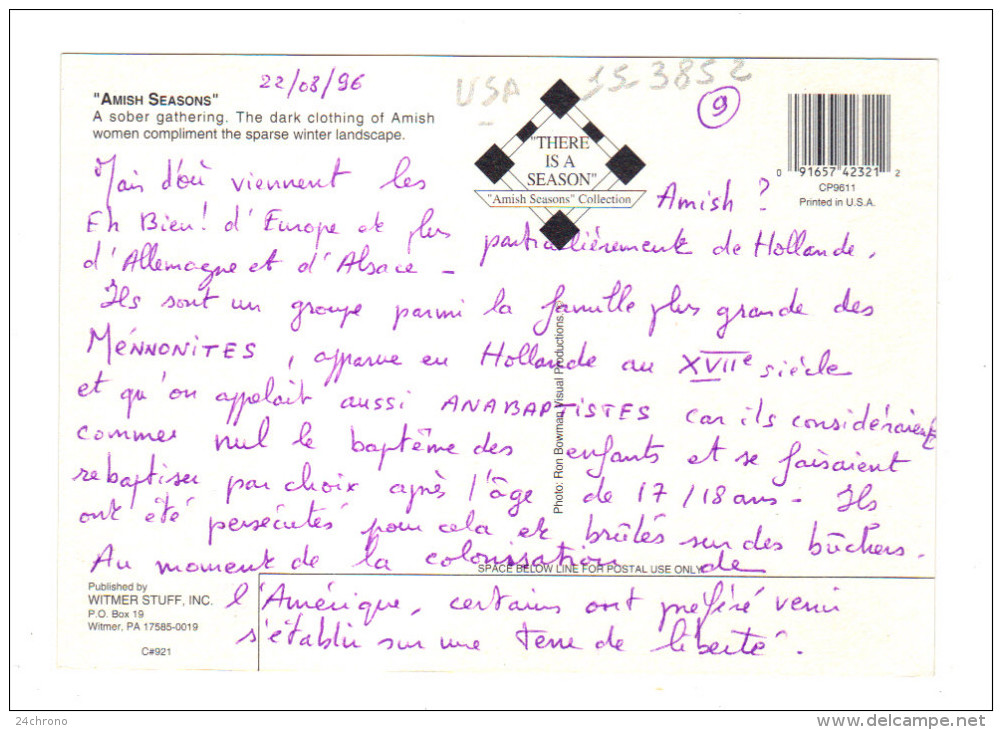 22/08/96
USA
15 3852
9
"AMISH SEASONS"
A sober gathering. The dark clothing of Amish
women compliment the sparse winter landscape.
"THERE
IS A
SEASON"
"Amish Seasons" Collection
0 91657 42321 2
CP9611
Printed in U.S.A.
Mais d'où viennent les Amish ?
Eh Bien! d'Europe et plus particulièrement de Hollande,
d'Allemagne et d'Alsace -
Ils sont un groupe parmi la famille plus grande des
MÉNNONITES, apparue en Hollande au XVIIe siècle
et qu'on appelait aussi ANABAPTISTES car ils considéraient
comme nul le baptême des enfants et se faisaient
rebaptiser par choix après l'âge de 17/18 ans - Ils
ont été persécutés pour cela et brûlés sur des bûchers.
Au moment de la colonisation de
l'Amérique, certains ont préféré venir
s'établir sur une terre de liberté.
Photo: Ron Bowman Visual Productions
SPACE BELOW LINE FOR POSTAL USE ONLY
Published by
WITMER STUFF, INC.
P.O. Box 19
Witmer, PA 17585-0019
C#921
24chrono
www.delcampe.net